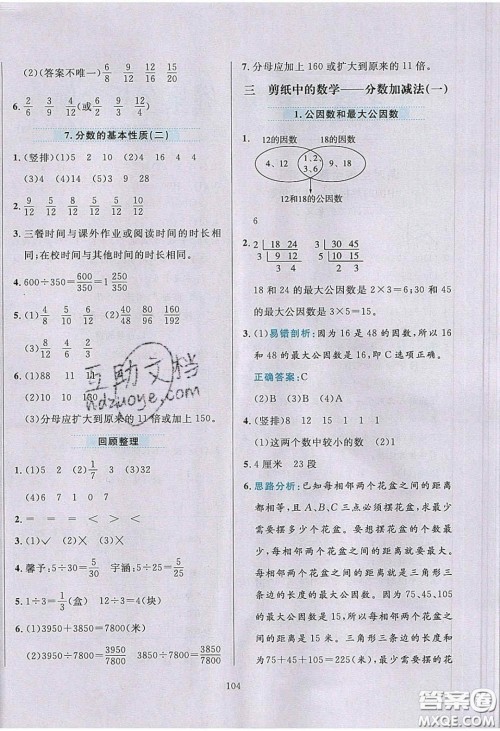 (2)(答案不唯一) 8/12 15/18 12/15
6. 2/6 3/9 4/12 6/18(或其他)
7.分数的基本性质(二)
1. (竖排)(1)5 2 10 4 (2)4 16
(3)4 (4)5 9 18
2. 8/12 9/12 10/12 5/12
3. 三餐时间与课外作业或阅读时间的时长相
同;在校时间与其他时间的时长相同。
4. 600÷350=600/350=1 250/350
5. (1)4/8 5/10 6/12 (2)40/50 80/100 160/200
6. (1)88 11 (2)10 16
(3)分母应扩大到原来的11倍或加上150。
回顾整理
1. (1)2 (2)1/7 3 (3)32
2. = = = < > <
3. (1)✓ (2)✗ (3)✗
4. 馨予:5÷30=5/30 宇涵:5÷25=5/25
5. 1÷3=1/3(盒) 12÷3=4(块)
6. (1)3950+3850=7800(米)
(2)3950÷7800=3950/7800 3850÷7800=
3850/7800
7. 分母应加上160或扩大到原来的11倍。
三 剪纸中的数学——分数加减法(一)
1.公因数和最大公因数
1. 12的因数 18的因数
4、12 1、2、3、6 9、18
12和18的公因数
6
2. 2 18 24 2 30 45
3 9 12 3 15 45
3 4 5 15
18和24的最大公因数是2×3=6;30和
3. (1)易错剖析:因为16是48的因数,所以16
和48的最大公因数是16,即C选项正确。
正确答案:C
4. (竖排)8 12 15 1 1 1
(1)这两个数中较小的数 (2)1
5. 4厘米 23段
6. 思路分析:已知每相邻两个花盆之间的距离
相等,且A、B、C三点必须摆花盆,求最少
需要摆多少个花盆。要想摆的花盆最少,就
需要每相邻两个花盆之间的距离要最大。
每相邻两个花盆之间的距离就是三角形三
条边的长度的最大公因数。因为75,45,105
的最大公因数是15,所以每相邻两个花盆之
间的距离是15米。三角形三条边的长度和
为75+45+105=225(米),所以最少需要摆
104
互助文档
hdzuoye.com
答案圈
MXQE.COM